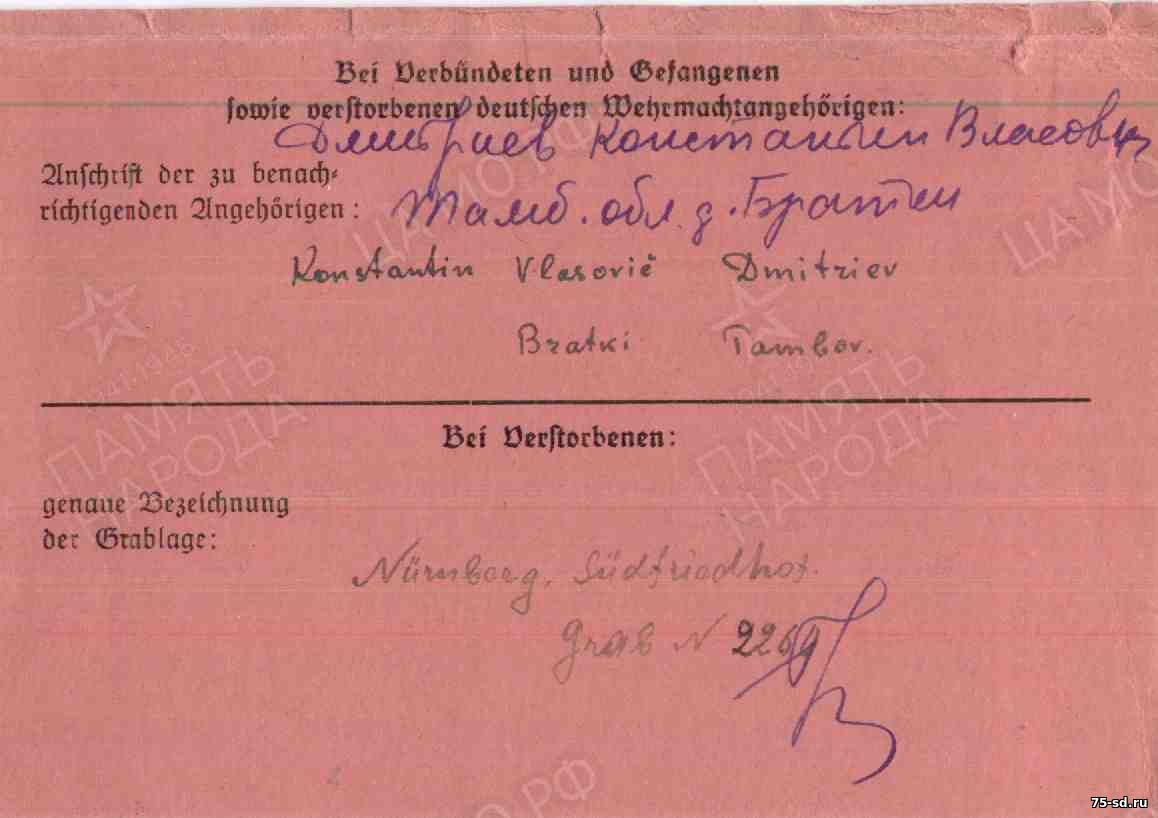 Bei Verbündeten und Gefangenen
sowie verstorbenen deutschen Wehrmachtangehörigen:
Дмитриев Константин Власович
Anschrift der zu benach-
richtigenden Angehörigen: Тамб. обл. д. Братки
Konstantin Vlasovič Dmitriev
Bratki Tambov.
Bei Verstorbenen:
genaue Bezeichnung
der Grablage:
Nürnberg, Südfriedhof.
Grab N
ЦА МО РФ
ЦА МО
1941-1945
ПАМЯТЬ
НАРОДА
1941-1945
ПАМЯТЬ
НАРОДА
О.РФ
75-sd.ru